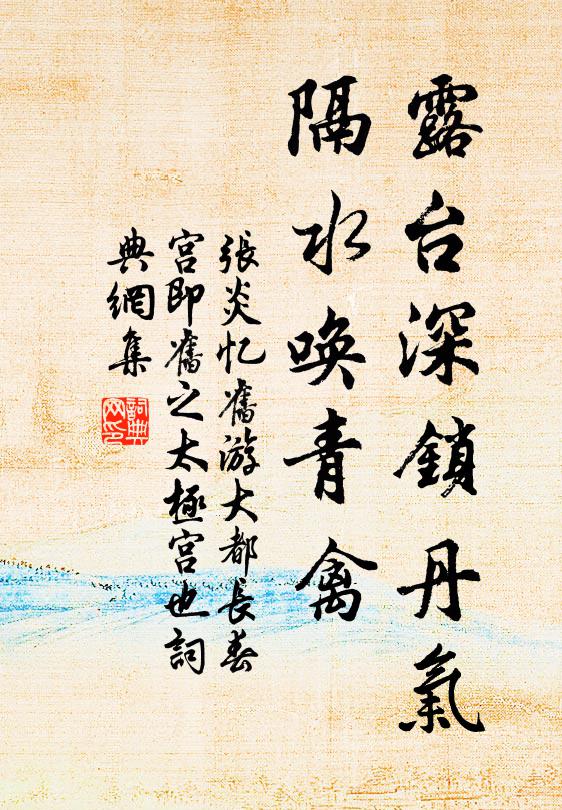 露台深鎖丹氣
隔水唤青禽
張炎忆舊游大都長春
宫即舊之太極宫也詞
典網集
詞典
网印